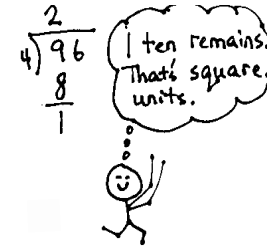 2
4)96
8
1
1 ten remains.
That's square.
units.